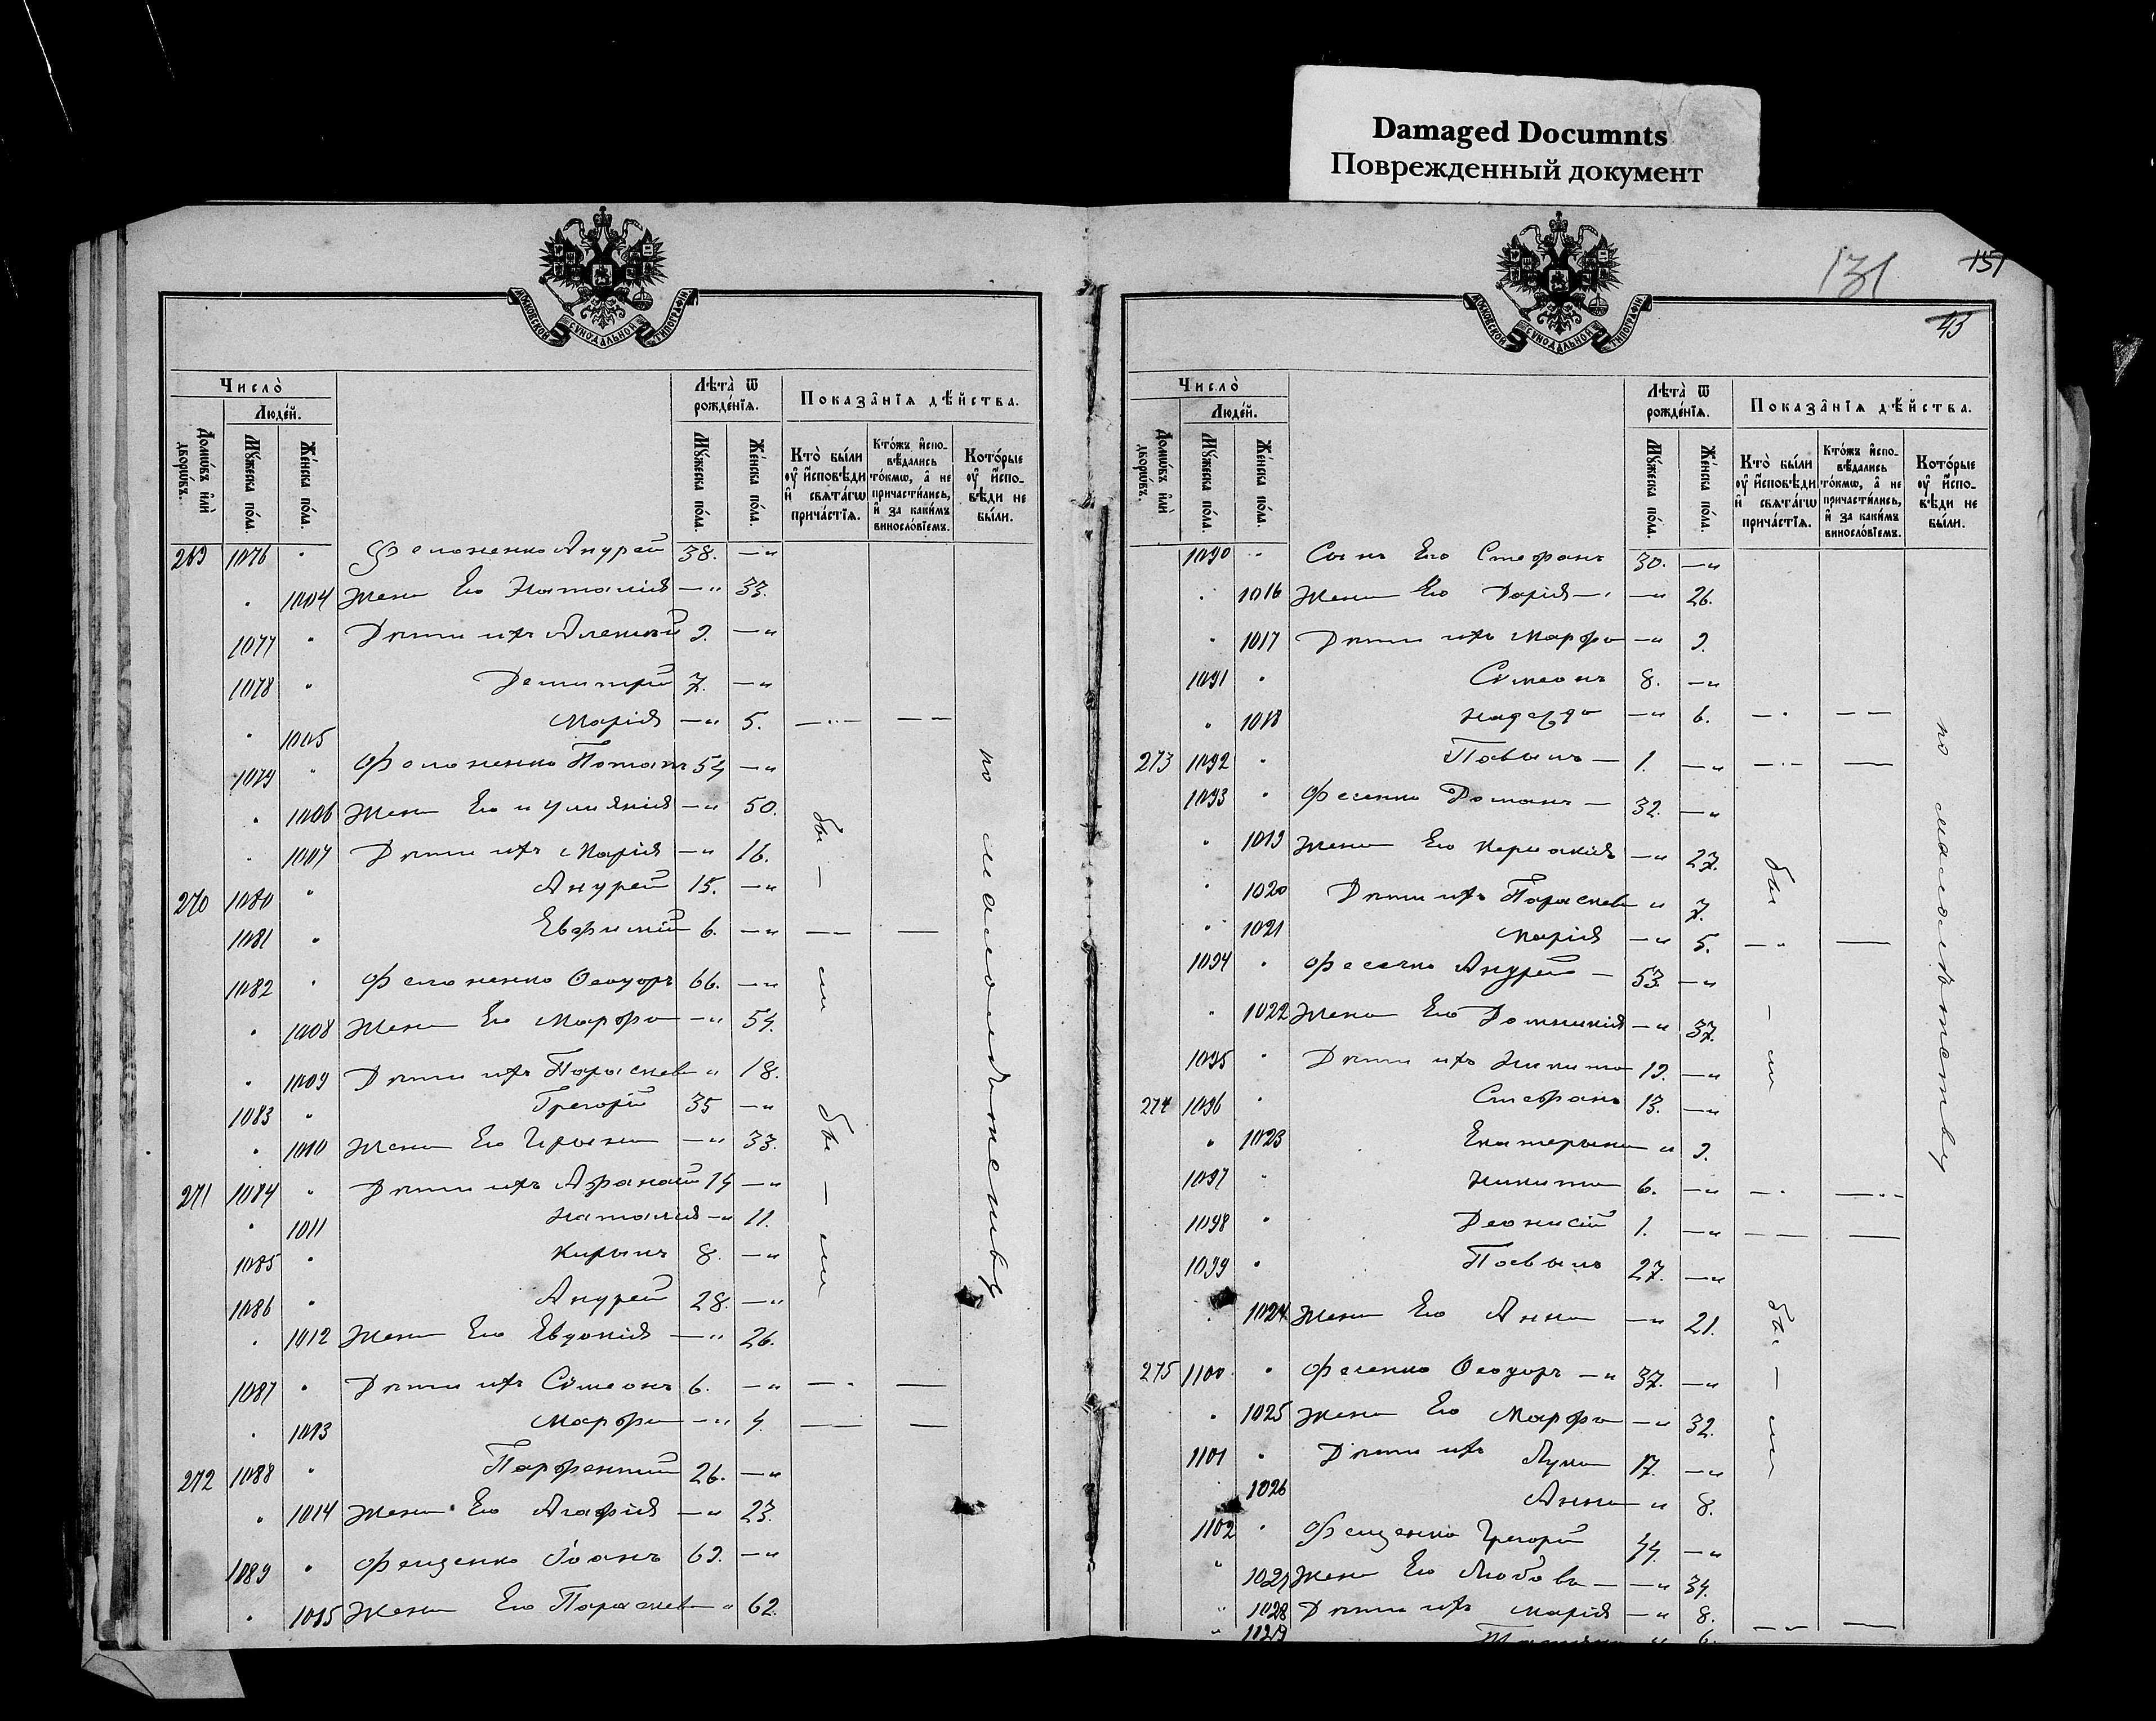 Damaged Documnts
Поврежденный документ
МОСКОВСКОЙ СѴНОДАЛЬНОЙ ТИПОГРАФІИ
Число̀
Людéй.
Домѡвъ и҆лѝ дворѡвъ.
Мꙋ́жеска по́ла.
Же́нска по́ла.
Лѣта̀ ѿ рождéнїѧ.
Мꙋ́жеска по́ла.
Же́нска по́ла.
Показа̑нїѧ дѣ́йства.
Кто̀ бы́ли ᲂу҆ и҆сповѣди и҆ свѧта́гѡ прича́стїѧ.
Кто́жъ и҆спо-вѣ́дались то́кмѡ, а҆ не причасти́лись, и҆ за каки́мъ винослóвїемъ.
Кото́рые ᲂу҆ и҆спо-вѣди не бы́ли.
269 1076 " Фелоненко Андрей 38. — "
" 1004 Жена Его Наталія — " 33.
1077 " Дѣти ихъ Алексѣй 9. — "
1078 " Демитрій 7. — "
" 1005 Марія — " 5. — " — — —
1079 " Фелоненко Потапъ 54 — "
" 1006 Жена Его Иулиянія — " 50.
" 1007 Дѣти ихъ Марія — " 16.
270 1080 " Андрей 15. — "
1081 " Евфимій 6. — " — — —
1082 " Фелоненко Ѳеодоръ 66. — "
" 1008 Жена Его Марфа — " 54.
" 1009 Дѣти ихъ Параскева " 18.
1083 " Грегорій 35 — "
" 1010 Жена Его Ирына — " 33.
271 1084 " Дѣти ихъ Афанасій 14 — "
" 1011 Наталія — " 11.
1085 " Кирылъ 8. — "
1086 " Андрей 28. — "
" 1012 Жена Его Евдокія — " 26.
1087 " Дѣти ихъ Сѵмеонъ 6. — " — " —
" 1013 Марфа — " 4. — — —
272 1088 " Парфентій 26. — "
" 1014 Жена Его Агафія — " 23.
1089 " Фещенко Іоанъ 69. — "
" 1015 Жена Его Параскева " 62.
бы — ли
бы — ли
по малолѣтству
131
151
43
МОСКОВСКОЙ СѴНОДАЛЬНОЙ ТИПОГРАФІИ
Число̀
Людéй.
Домѡвъ и҆лѝ дворѡвъ.
Мꙋ́жеска по́ла.
Же́нска по́ла.
Лѣта̀ ѿ рождéнїѧ.
Мꙋ́жеска по́ла.
Же́нска по́ла.
Показа̑нїѧ дѣ́йства.
Кто̀ бы́ли ᲂу҆ и҆сповѣди и҆ свѧта́гѡ прича́стїѧ.
Кто́жъ и҆спо-вѣ́дались то́кмѡ, а҆ не причасти́лись, и҆ за каки́мъ винослóвїемъ.
Кото́рые ᲂу҆ и҆спо-вѣди не бы́ли.
1090 " Сынъ Его Стефанъ 30. — "
" 1016 Жена Его Дарія — " 26.
" 1017 Дѣти ихъ Марфа — " 9.
1091 " Сѵмеонъ 8. — "
" 1018 Надежда — " 6. — " — —
273 1092 " Павылъ — 1. — " — " —
1093 " Фесенко Романъ — 32. — "
" 1019 Жена Его — " 27.
" 1020 Дѣти ихъ Параскева " 7.
" 1021 Марія — " 5. — " —
1094 " Фесенко Андрей — 53. — "
" 1022 Жена Его Домникія — " 37.
1095 " Дѣти ихъ Никита 19. — "
274 1096 " Стефанъ 13. — "
" 1023 Екатерына " 9.
1097 " Никита 6. — " — " — "
1098 " Деонисій 1. — " — — —
1099 " Павылъ 27. — "
" 1024 Жена Его Анна — " 21.
275 1100 " Фесенко Ѳеодоръ — " 37. — "
" 1025 Жена Его Марфа — " 32.
1101 " Дѣти ихъ Лука 17. — "
" 1026 Анна " 8.
1102 " Фещенко Грегорій 44. — "
" 1027 Жена Его Любовь — — " 34.
" 1028 Дѣти ихъ Марія — " 8.
" 1029 " 6. — " —
бы — ли
бы — ли
по малолѣтству